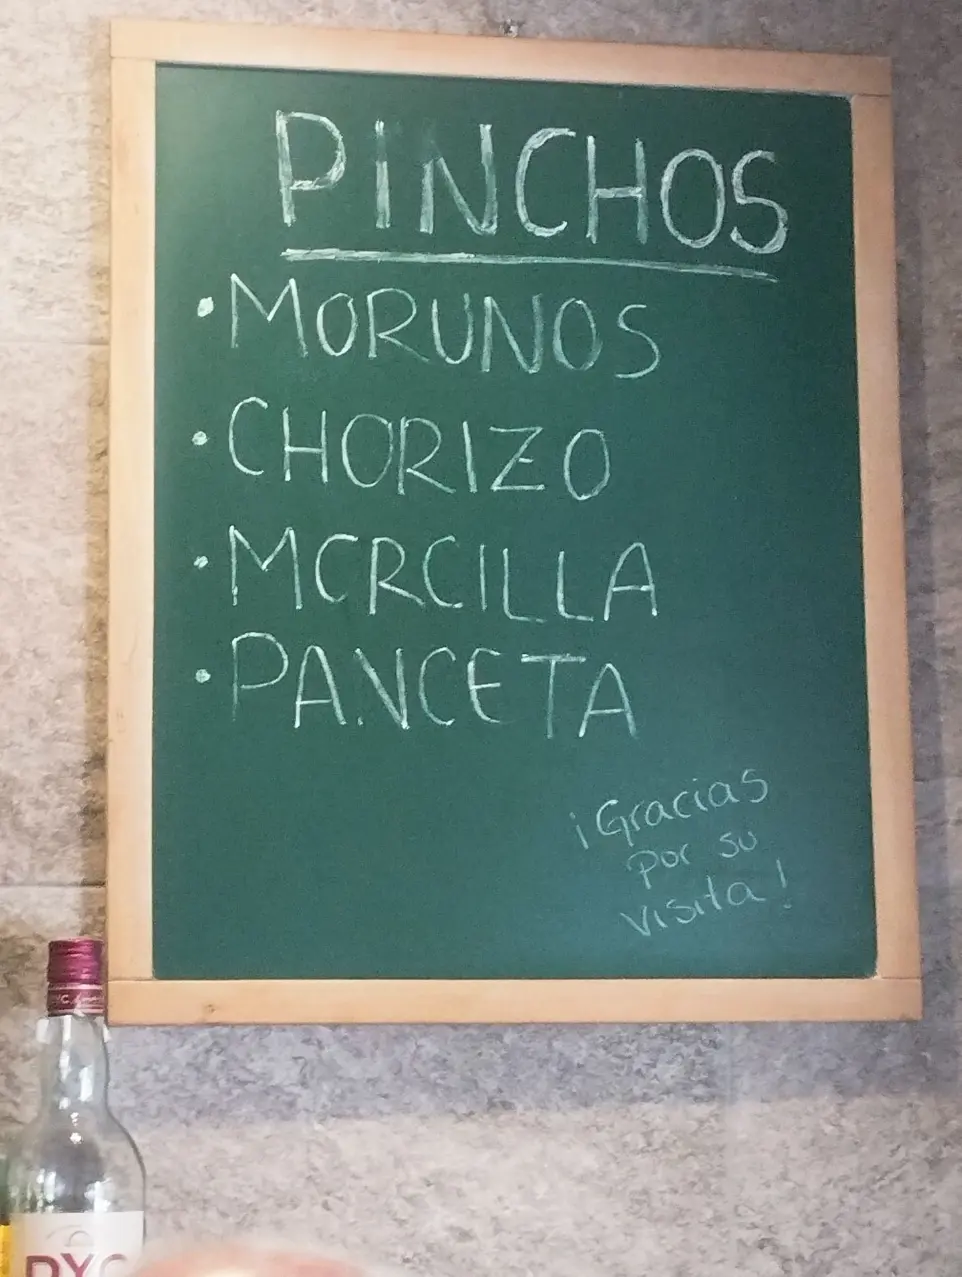 PINCHOS
• MORUNOS
• CHORIZO
• MORCILLA
• PANCETA
¡Gracias
por su
visita!
DYC